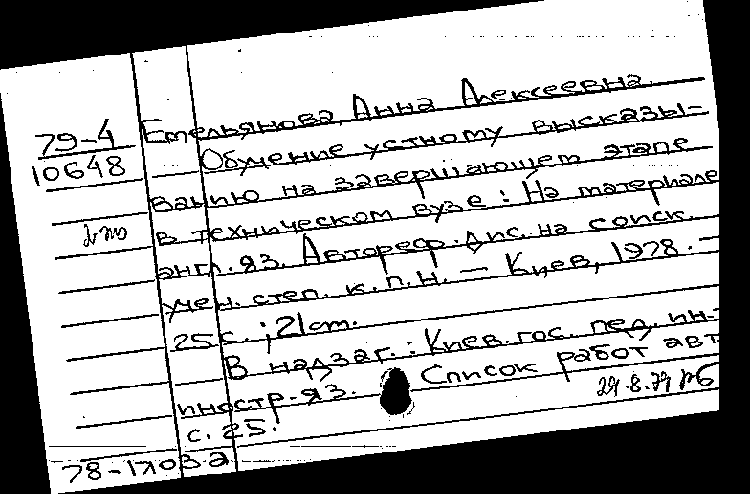 79-4
10648
Емельянова, Анна Алексеевна.
Обучение устному высказы-
ванию на завершающем этапе
в техническом вузе: На материале
англ. яз. Автореф. дис. на соиск.
учен. степ. к. п. н. — Киев, 1978. —
25 с.; 21 cm.
В надзаг.: Киев. гос. пед. ин-т
иностр. яз. Список работ авт.
с. 25.
29.8.79
78-17032